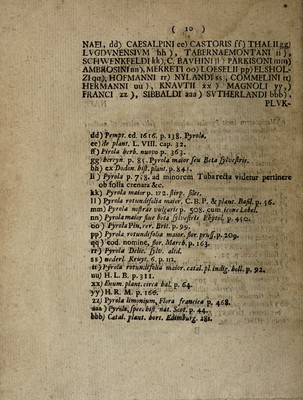 ( 10 )
NAEI, dd) CAESALPINI ee) CASTORIS ff) THALII gg)
LVGDVNENSIVM hh ), TABERNAEMONTANI ii ),
SCHWENKFELDI kk), C. BAVHINI ll ) PARKISONI mm)
AMBROSINI nn), MERRETI oo) LOESELII pp) ELSHOL-
ZI qq), HOFMANNI rr) NYLANDI ss), COMMELINI tt)
HERMANNI uu ), KNAVTII xx ) MAGNOLI yy,)
FRANCI zz ), SIBBALDI aaa ) SVTHERLANDI bbb),
PLVK-
dd) Pempt. ed. 1616. p. 138. Pyrola.
ee) de plant. L. VIII. cap. 32.
ff) Pirola herb. nuovo p. 363.
gg) hercyn. p. 85. Pyrola maior seu Beta sylvestris.
hh) ex Dodon. hist. plant. p. 841.
ii ) Pyrola p. 728. ad minorem Tuba recta videtur pertinere
ob folia crenata &c.
kk) Pyrola maior p. 172. stirp. siles.
ll) Pyrola rotundifolia maior. C. B. P. & plant. Basil. p. 56.
mm) Pyrola nostras vulgaris p. 508. cum icone Lobel.
nn) Pyrola maior sive beta sylvestris Phytol. p. 450.
oo ) Pyrola Pin. rer. Brit. p. 99.
pp) Pyrola rotundifolia maior. flor. pruss. p. 209.
qq) eod. nomine, flor. March. p. 163.
rr) Pyrola Delic. sylv. altd.
ss) nederl. Kruyt. 6. p. 112.
tt) Pyrola rotundifolia maior. catal. pl. indig. holl. p. 92.
uu) H. L. B. p. 311.
xx) Enum. plant. circa hal. p. 64.
yy) H. R. M. p. 166.
zz) Pyrola limonium, Flora francica p. 468.
aaa ) Pyrola, spec. hist. nat. Scot. p. 44.
bbb) Catal. plant. hort. Edimburg. 281.